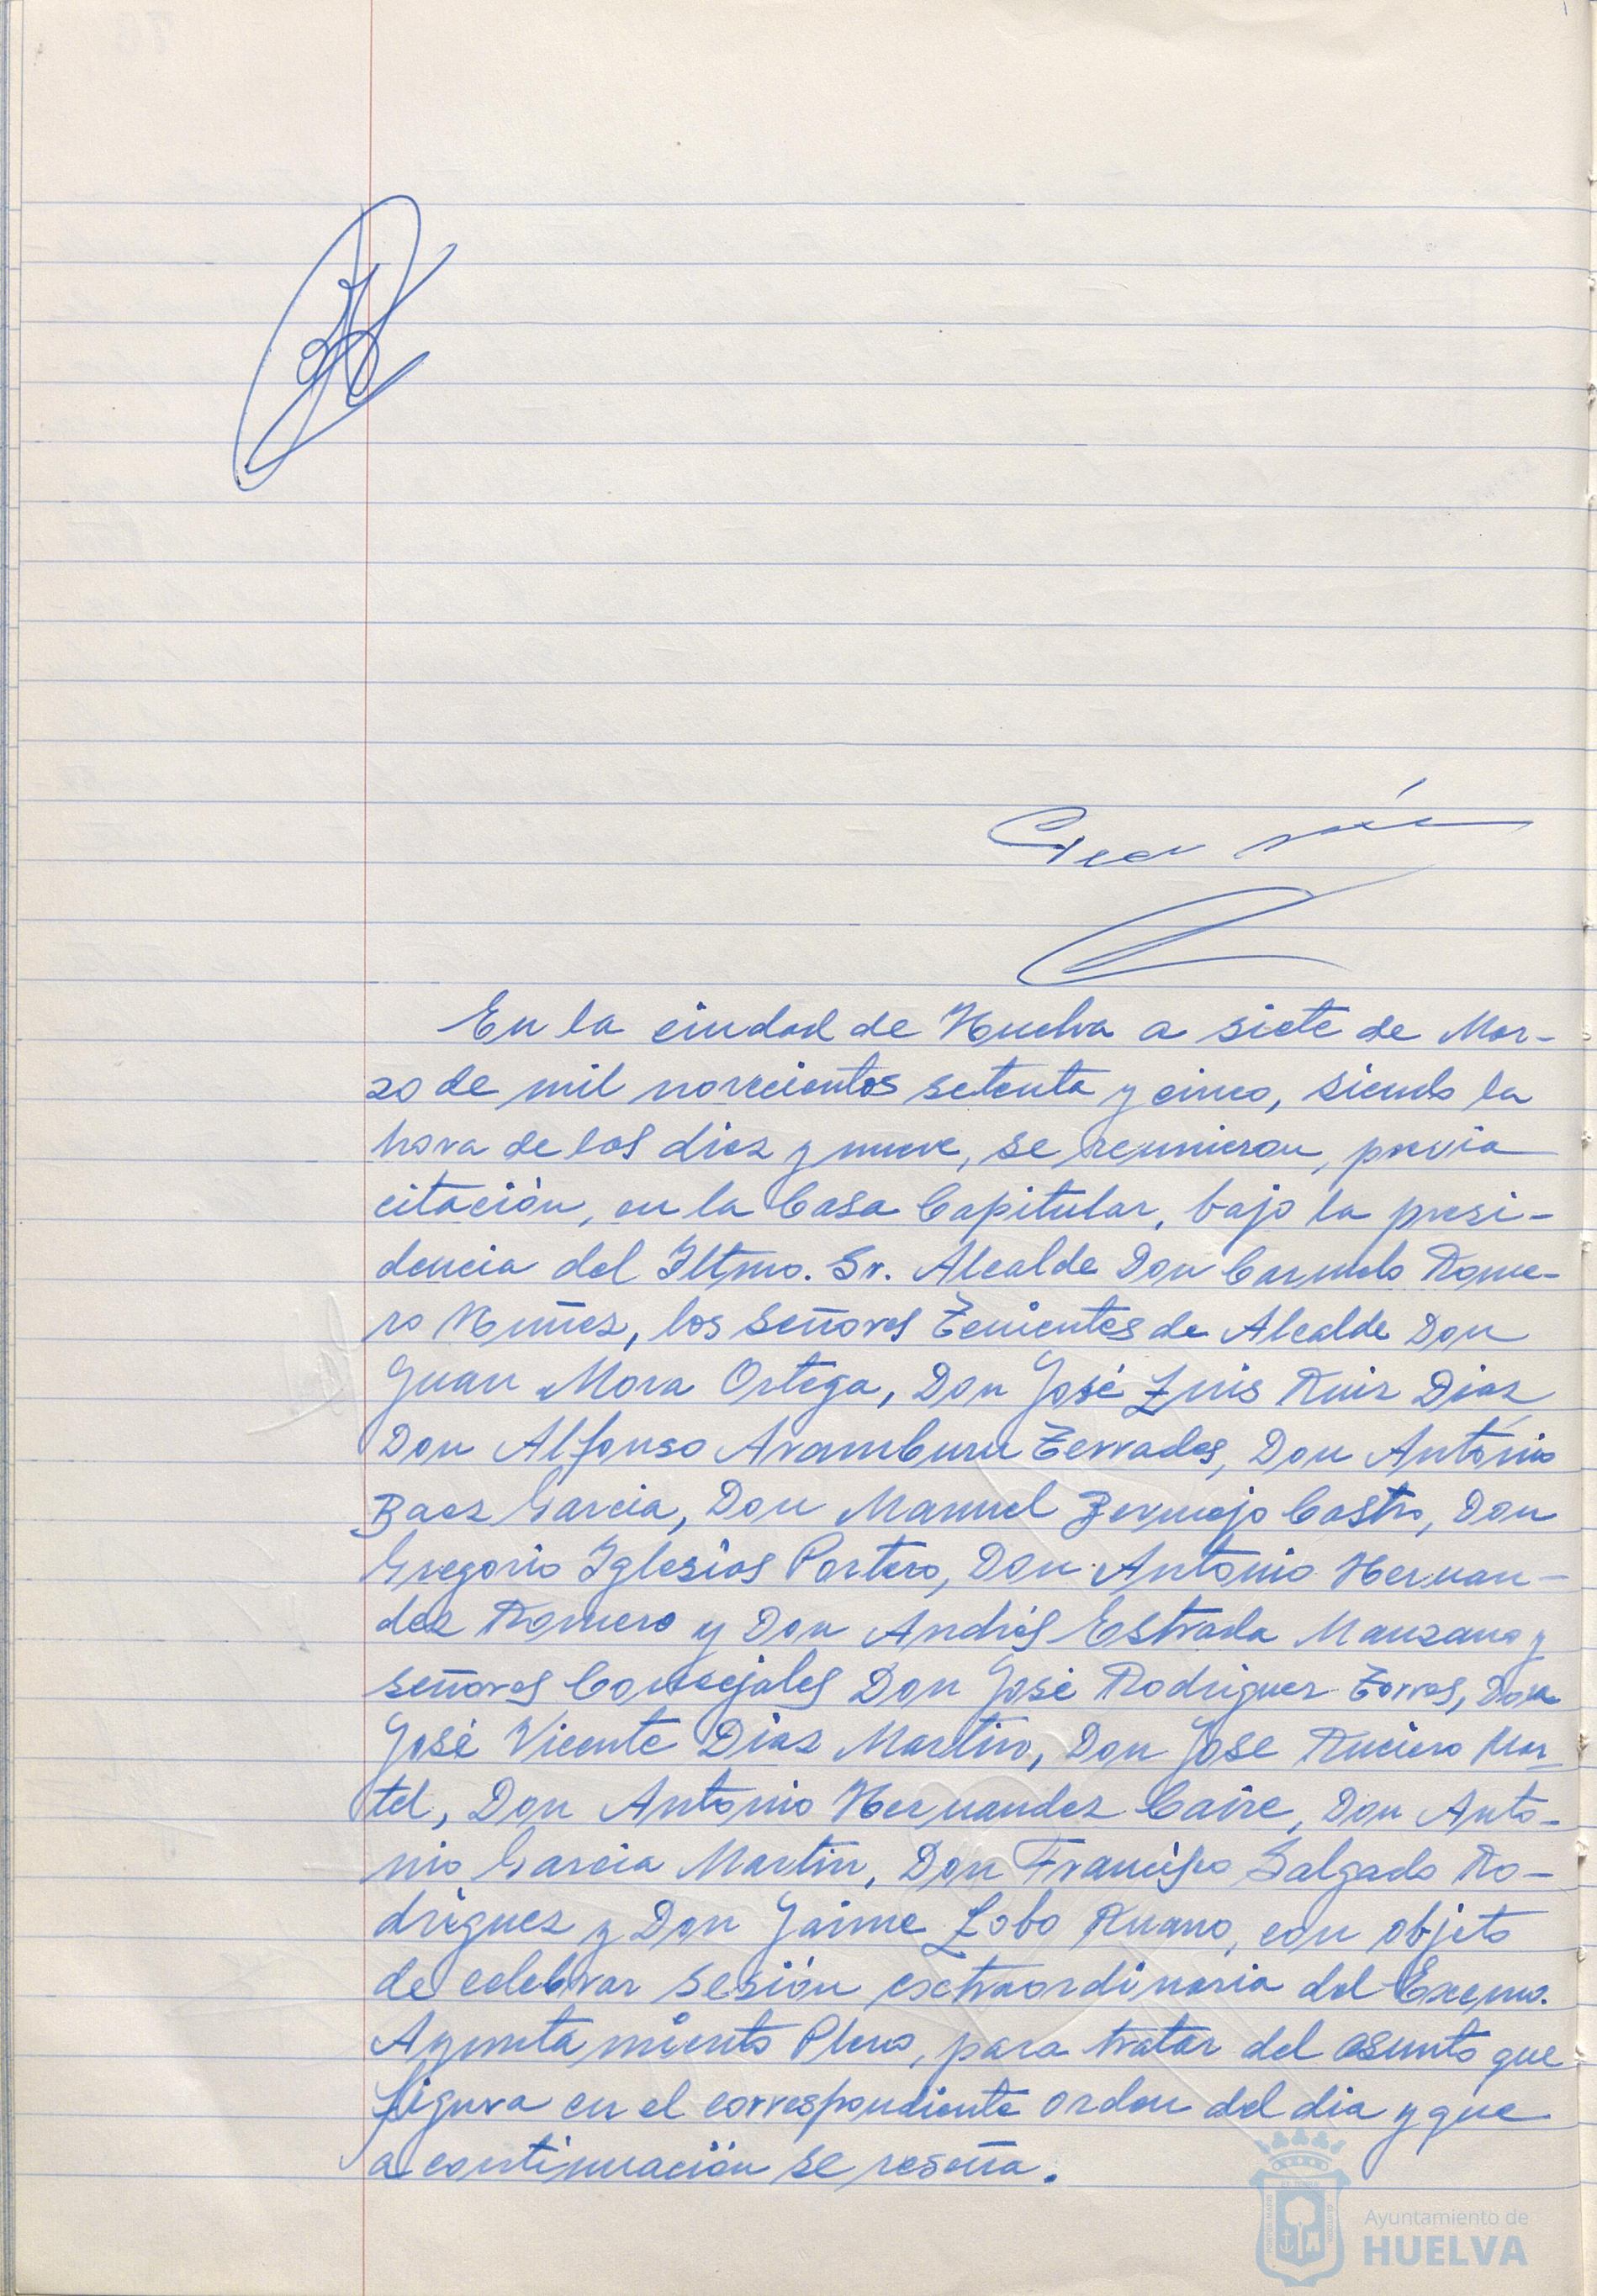 En la ciudad de Huelva a siete de Mar-
zo de mil novecientos setenta y cinco, siendo la
hora de las diez y nueve, se reunieron, previa
citación, en la Casa Capitular, bajo la presi-
dencia del Iltmo. Sr. Alcalde Don Carmelo Rome-
ro Nuñez, los señores Tenientes de Alcalde Don
Juan Mora Ortega, Don José Luis Ruiz Diaz,
Don Alfonso Aramburu Terrades, Don Antonio
Baez Garcia, Don Manuel Bermejo Castro, Don
Gregorio Iglesias Portero, Don Antonio Hernan-
dez Romero y Don Andrés Estrada Manzano y
señores Concejales Don José Rodriguez Torres, Don
José Vicente Diaz Martin, Don Jose Ruciero Mar-
tel, Don Antonio Hernandez Caire, Don Anto-
nio Garcia Martin, Don Francisco Salgado Ro-
driguez y Don Jaime Lobo Ruano, con objeto
de celebrar sesión extraordinaria del Excmo.
Ayuntamiento Pleno, para tratar del asunto que
figura en el correspondiente orden del dia y que
a continuación se reseña.
Ayuntamiento de
HUELVA